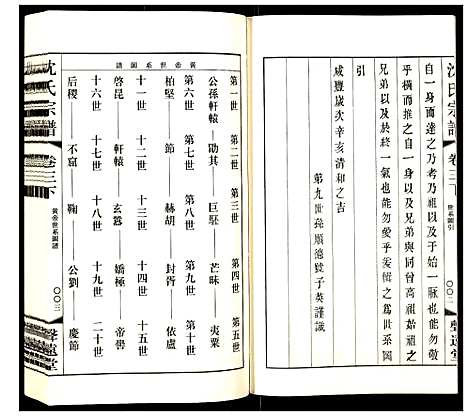 沈氏宗譜
卷三下
世系圖引
〇〇二
自一身而達之乃考以及于始一脈也能勿
乎一身而橫之乃弟以及兄弟與高祖始祖之
兄弟以及於終一氣也能勿愛乎爰慎之為世系圖
引
咸豐歲次辛亥清和之吉
第九世孫順德號子英謹識
黃帝世系圖譜
第一世 第二世 第三世 第四世 第五世
公孫軒轅 勖其 巨駓 芒昧 夷粟
第六世 第七世 第八世 第九世 第十世
柏堅 節 赫胡 封胥 依盧
十一世 十二世 十三世 十四世 十五世
啓昆 軒轅 玄囂 嬌極 帝嚳
十六世 十七世 十八世 十九世 二十世
后稷 不窋 鞠 公劉 慶節
沈氏宗譜
卷三下
黃帝世系圖譜
〇〇三